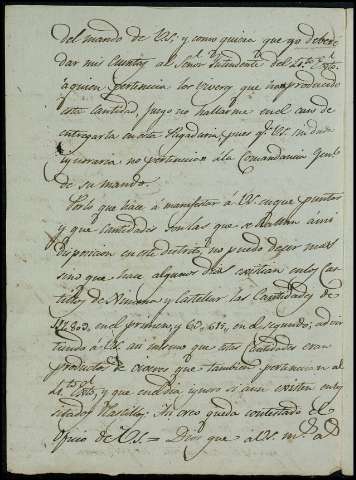 del mando de V.S. y como quiera que yo deberé
dar mis Cuentas al Señor Intendente del
á quien pertenecia los viveres que han producido
esta cantidad, juzgo no hallarme en el caso de
entregarla en esta Pagaduria, pues q.e V.S. no duda
ignoraria no pertenecia á la Comandancia Gen.l
de su mando.
Por lo que hace á manifestar á V.S. en que puntos
y que cantidades son las que se hallan á mi
disposicion en este distrito, no puedo decir mas
sino que hace algunos dias existian en los Cas
tillos de y Castellar las Cantidades de
en el primero, y en el segundo, advir
tiendo á V.S. asi mismo que estas Cantidades eran
producto de viveres que tambien pertenecian al
y que en el dia ignoro si aun existen en los
citados Castillos. Yo creo queda contestado el
Oficio de V.S. = Dios gue. á V.S. m.s a.s